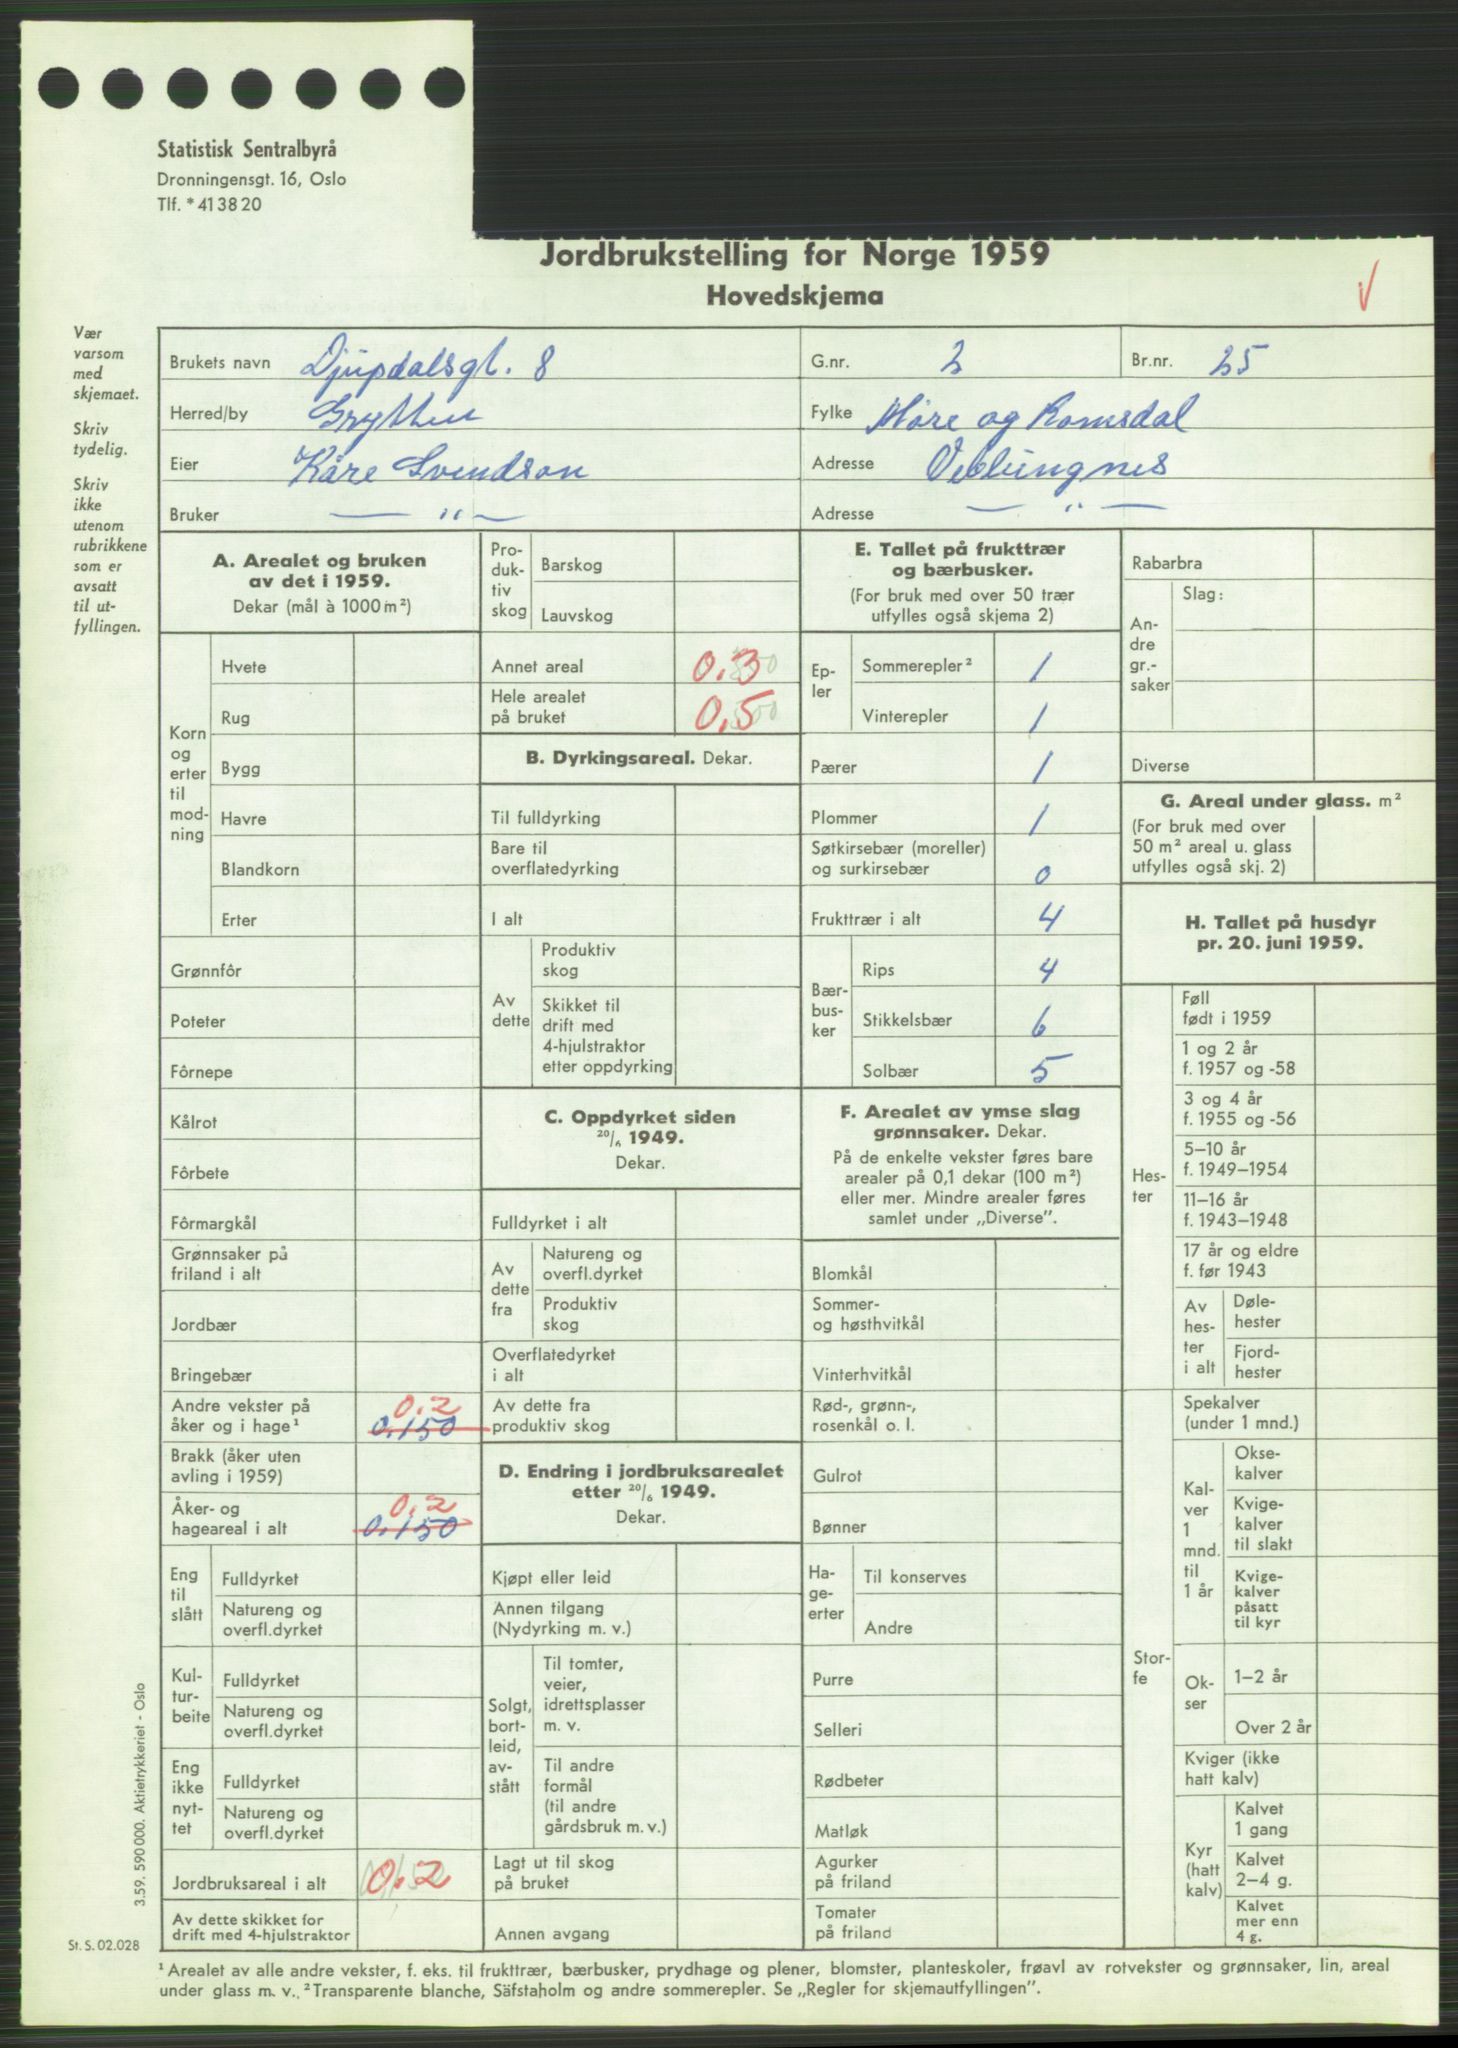 Statistisk Sentralbyrå
Dronningensgt. 16, Oslo
Tlf. * 41 38 20
Jordbrukstelling for Norge 1959
Hovedskjema
V
Vær
varsom
med
skjemaet.
Skriv
tydelig.
Skriv
ikke
utenom
rubrikkene
som er
avsatt
til ut-
fyllingen.
Brukets navn Djupdalsgt. 8 G.nr. 2 Br.nr. 25
Herred/by Grytten Fylke Møre og Romsdal
Eier Kåre Svendson Adresse Veblungnes
Bruker — " — Adresse — " —
A. Arealet og bruken
av det i 1959.
Dekar (mål à 1000 m²)
Korn
og
erter
til
mod-
ning
Hvete
Rug
Bygg
Havre
Blandkorn
Erter
Grønnfôr
Poteter
Fôrnepe
Kålrot
Fôrbete
Fôrmargkål
Grønnsaker på
friland i alt
Jordbær
Bringebær
Andre vekster på
åker og i hage¹ 0.2 0.150
Brakk (åker uten
avling i 1959)
Åker- og
hageareal i alt 0.2 0.150
Eng
til
slått
Fulldyrket
Natureng og
overfl.dyrket
Kul-
tur-
beite
Fulldyrket
Natureng og
overfl.dyrket
Eng
ikke
nyt-
tet
Fulldyrket
Natureng og
overfl.dyrket
Jordbruksareal i alt 0.2
Av dette skikket for
drift med 4-hjulstraktor
Pro-
duk-
tiv
skog
Barskog
Lauvskog
Annet areal 0.3
Hele arealet
på bruket 0,5
B. Dyrkingsareal. Dekar.
Til fulldyrking
Bare til
overflatedyrking
I alt
Av
dette
Produktiv
skog
Skikket til
drift med
4-hjulstraktor
etter oppdyrking
C. Oppdyrket siden
20/6 1949.
Dekar.
Fulldyrket i alt
Av
dette
fra
Natureng og
overfl.dyrket
Produktiv
skog
Overflatedyrket
i alt
Av dette fra
produktiv skog
D. Endring i jordbruksarealet
etter 20/6 1949.
Dekar.
Kjøpt eller leid
Annen tilgang
(Nydyrking m. v.)
Solgt,
bort-
leid,
av-
stått
Til tomter,
veier,
idrettsplasser
m. v.
Til andre
formål
(til andre
gårdsbruk m. v.)
Lagt ut til skog
på bruket
Annen avgang
E. Tallet på frukttrær
og bærbusker.
(For bruk med over 50 trær
utfylles også skjema 2)
Ep-
ler
Sommerepler² 1
Vinterepler 1
Pærer 1
Plommer 1
Søtkirsebær (moreller)
og surkirsebær 0
Frukttrær i alt 4
Bær-
bus-
ker
Rips 4
Stikkelsbær 6
Solbær 5
F. Arealet av ymse slag
grønnsaker. Dekar.
På de enkelte vekster føres bare
arealer på 0,1 dekar (100 m²)
eller mer. Mindre arealer føres
samlet under „Diverse”.
Blomkål
Sommer-
og høsthvitkål
Vinterhvitkål
Rød-, grønn-,
rosenkål o. l.
Gulrot
Bønner
Ha-
ge-
erter
Til konserves
Andre
Purre
Selleri
Rødbeter
Matløk
Agurker
på friland
Tomater
på friland
Rabarbra
An-
dre
gr.-
saker
Slag:
Diverse
G. Areal under glass. m²
(For bruk med over
50 m² areal u. glass
utfylles også skj. 2)
H. Tallet på husdyr
pr. 20. juni 1959.
Hes-
ter
Føll
født i 1959
1 og 2 år
f. 1957 og -58
3 og 4 år
f. 1955 og -56
5–10 år
f. 1949–1954
11–16 år
f. 1943–1948
17 år og eldre
f. før 1943
Av
hes-
ter
i alt
Døle-
hester
Fjord-
hester
Stor-
fe
Spekalver
(under 1 mnd.)
Kal-
ver
1
mnd.
til
1 år
Okse-
kalver
Kvige-
kalver
til slakt
Kvige-
kalver
påsatt
til kyr
Ok-
ser
1–2 år
Over 2 år
Kviger (ikke
hatt kalv)
Kyr
(hatt
kalv)
Kalvet
1 gang
Kalvet
2–4 g.
Kalvet
mer enn
4 g.
3.59. 590 000. Aktietrykkeriet - Oslo
St. S. 02.028
¹ Arealet av alle andre vekster, f. eks. til frukttrær, bærbusker, prydhage og plener, blomster, planteskoler, frøavl av rotvekster og grønnsaker, lin, areal
under glass m. v. ² Transparente blanche, Säfstaholm og andre sommerepler. Se „Regler for skjemautfyllingen”.